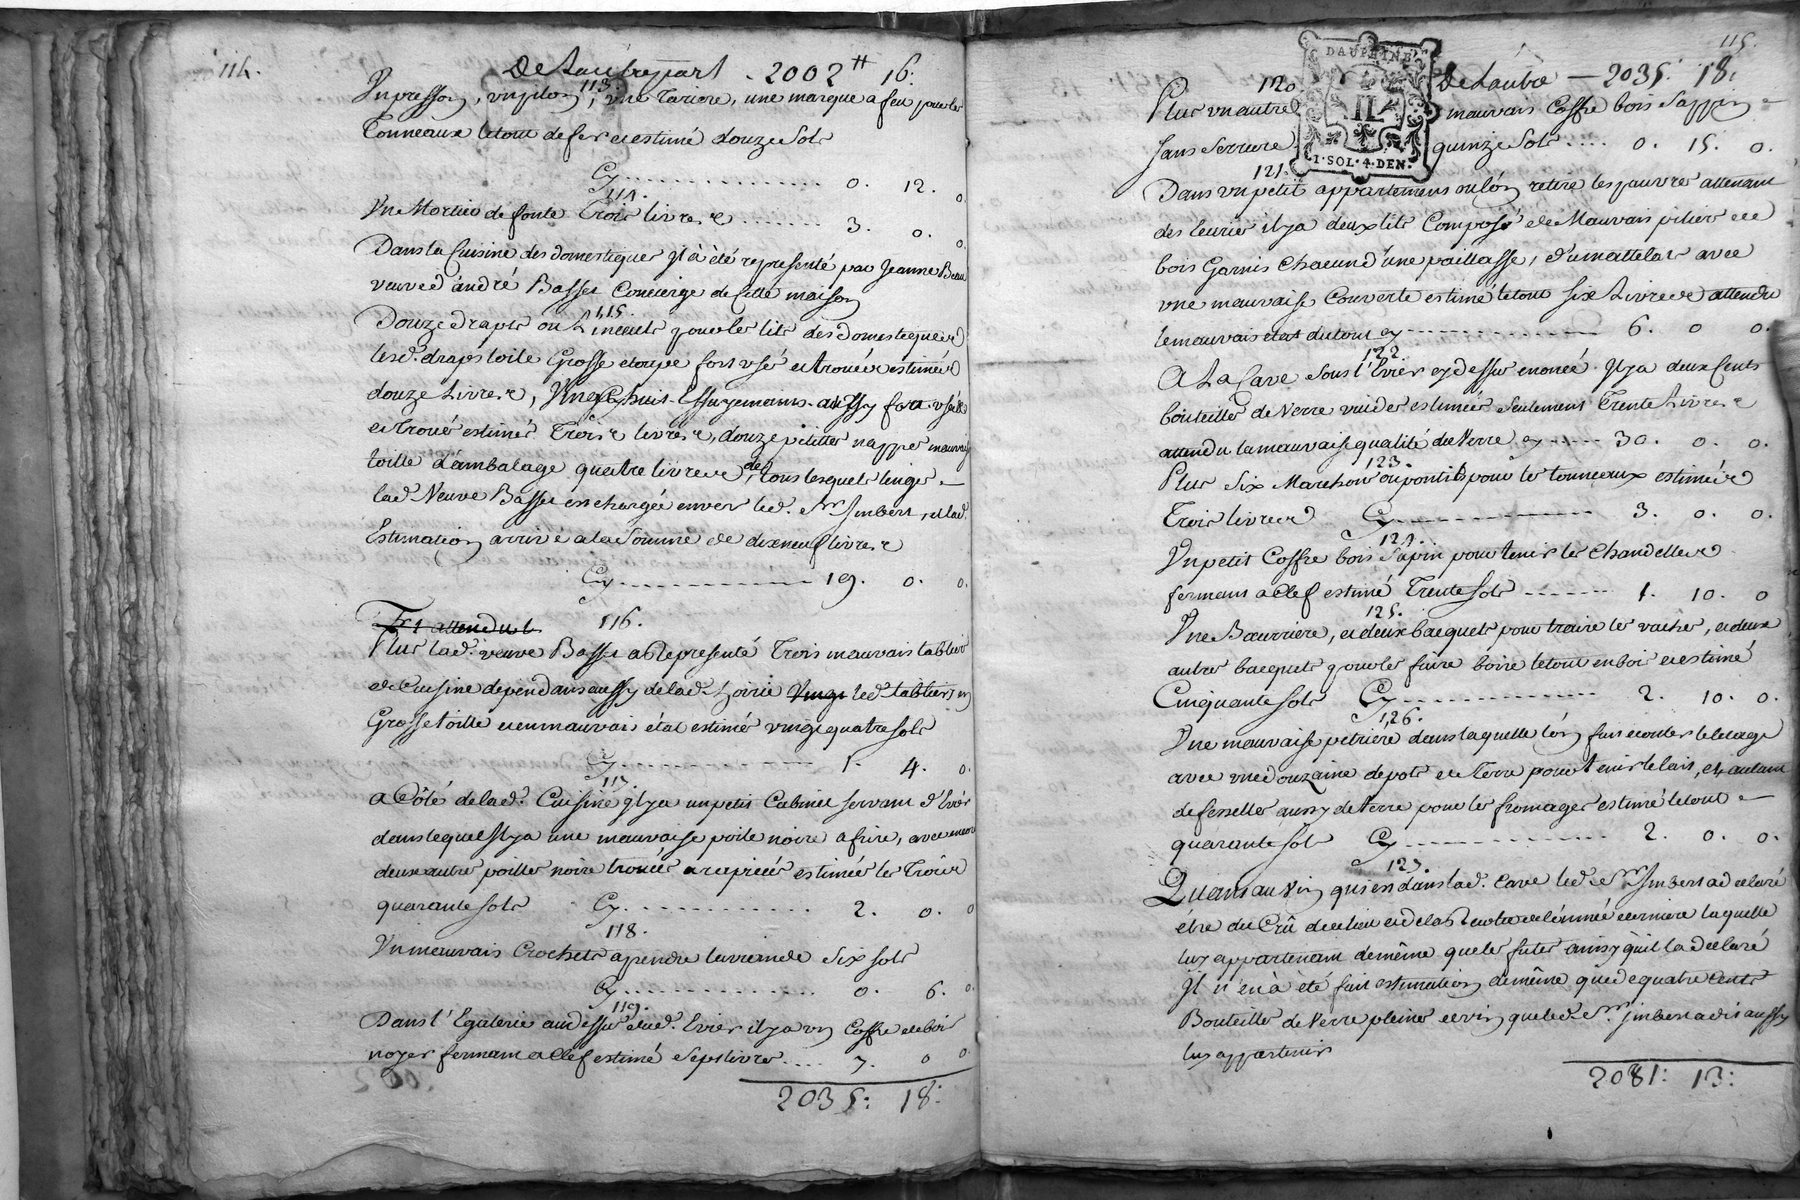 114.
De Lautrepart - 2002 ₶ 16.
113.
Un pressoy, un pilon, une Tariere, une marque a feu pour les
Tonneaux le tout de fer et estimé douze Sols
Cy ................ 0. 12. 0
114.
Un Mortier de fonte Trois livres ........ 3. 0. 0.
Dans la Cuisine des domestiques Il à été representé par Jeanne Beau
veuve d'andré Basset Concierge de cette maison
115.
Douze draps ou Linceuls pour les lits des Domestiques
lesd. draps toile Grosse etoupe fort usé et trouée estimés
douze Livres, Vingt huit Essuyemains aussy fort usés
et troué estimés Trois livres, douze petittes nappes mauvaise
toille d'ambalage quatre livres, de tous lesquels linges
lad. Veuve Basset en chargée envers led. Sr. Imbert, et lad.
Estimation arrive a la Somme de dix neuf livres
Cy ............... 19. 0. 0.
Et attendu l
116.
Plus lad. veuve Basset a Representé Trois mauvais tablier
de Cuisine dependans aussy de lad. hoirie Vingt led. tabliers en
Grosse toille et en mauvais état estimés vingt quatre sols
Cy ............... 1. 4. 0.
117.
a Côté de lad. Cuisine Il y a un petit Cabinet servant d'Evier
dans lequel Il y a une mauvaise poile noire a frire, avec encor
deux autre poilles noire trouées et rapiecés estimées les Trois
quarante sols Cy ............ 2. 0. 0
118.
Un mauvais Crochets a pendre la viande Six sols
Cy ............ 0. 6. 0.
119.
Dans l'Egaterie au dessus dud. Evier il y a un Coffre de bois
noyer fermant a Clef estimé Sept livres .... 7. 0 0.
2035: 18:
115.
De Lautre — 2035: 18:
DAUPHINÉ
1·SOL·4·DEN.
120
Plus un autre mauvais Coffre bois Sappin
sans Serrure quinze Sols .... 0. 15. 0.
121.
Dans un petit appartement ou lon retire les pauvres attenant
des Ecurie il y a deux lits Composé de Mauvais piliers de
bois Garnis Chacun d'une paillasse, d'un mattelas avec
une mauvaise Couverte estimé le tout Six Livres attendu
le mauvais etat du tout cy ............ 6. 0 0.
122.
A La Cave sous l'Evier cy dessus enoncé Il y a deux Cents
bouteilles de Verre vuides estimées seulement Trente Livres
attendu la mauvaise qualité du Verre cy ...... 30. 0. 0.
123.
Plus Six Marchons ou pontils pour les tonneaux estimés
Trois livres Cy ............ 3. 0. 0.
124.
Un petit Coffre bois Sapin pour tenir les Chandelles
fermant a Clef estimé Trente sols ........ 1. 10. 0
125.
Une Beurriere, et deux bacquets pour traire les vaches, et deux
autres bacquets pour les faire boire le tout en bois et estimé
Cinquante sols Cy ............ 2. 10. 0.
126.
Une mauvaise petriere dans laquelle lon fait ecouler le laitage
avec une douzaine de pots de Terre pour tenir le lait, et autant
de fesselles aussy de Terre pour les fromages estimé le tout
quarante sols Cy ............ 2. 0. 0.
127.
Quant au Vin qui est dans lad. Cave led. Sr. Imbert a declaré
être du Crû de ce lieu et de la Recolte de l'année derniere laquelle
luy appartenant de même que les futes ainsy qu'il la declaré
Il n'en à été fait estimation de même que de quatre Cents
Bouteilles de Verre pleines de vin que led. Sr. Imbert a dit aussy
luy appartenir
2081: 13: